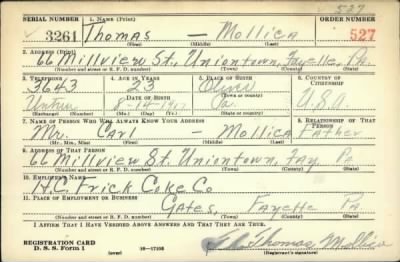 527
SERIAL NUMBER 1. NAME (Print) ORDER NUMBER
3261 Thomas — Mollica 527
(First) (Middle) (Last)
2. ADDRESS (Print)
66 Millview St., Uniontown, Fayette, Pa.
(Number and street or R. F. D. number) (Town) (County) (State)
3. TELEPHONE 4. AGE IN YEARS 5. PLACE OF BIRTH 6. COUNTRY OF CITIZENSHIP
3643 23 Oliver
DATE OF BIRTH (Town or county)
8-14-1917 Pa. U.S.A.
(Exchange) (Number) (Mo.) (Day) (Yr.) (State or country)
7. NAME OF PERSON WHO WILL ALWAYS KNOW YOUR ADDRESS 8. RELATIONSHIP OF THAT PERSON
Mr. Carl — Mollica Father
(Mr., Mrs., Miss) (First) (Middle) (Last)
9. ADDRESS OF THAT PERSON
66 Millview St. Uniontown, Fay. Pa
(Number and street or R. F. D. number) (Town) (County) (State)
10. EMPLOYER'S NAME
H.C. Frick Coke Co
11. PLACE OF EMPLOYMENT OR BUSINESS
Gates, Fayette Pa.
(Number and street or R. F. D. number) (Town) (County) (State)
I AFFIRM THAT I HAVE VERIFIED ABOVE ANSWERS AND THAT THEY ARE TRUE.
REGISTRATION CARD
D. S. S. Form 1 (over) 16—17105 Thomas Mollica
(Registrant's signature)